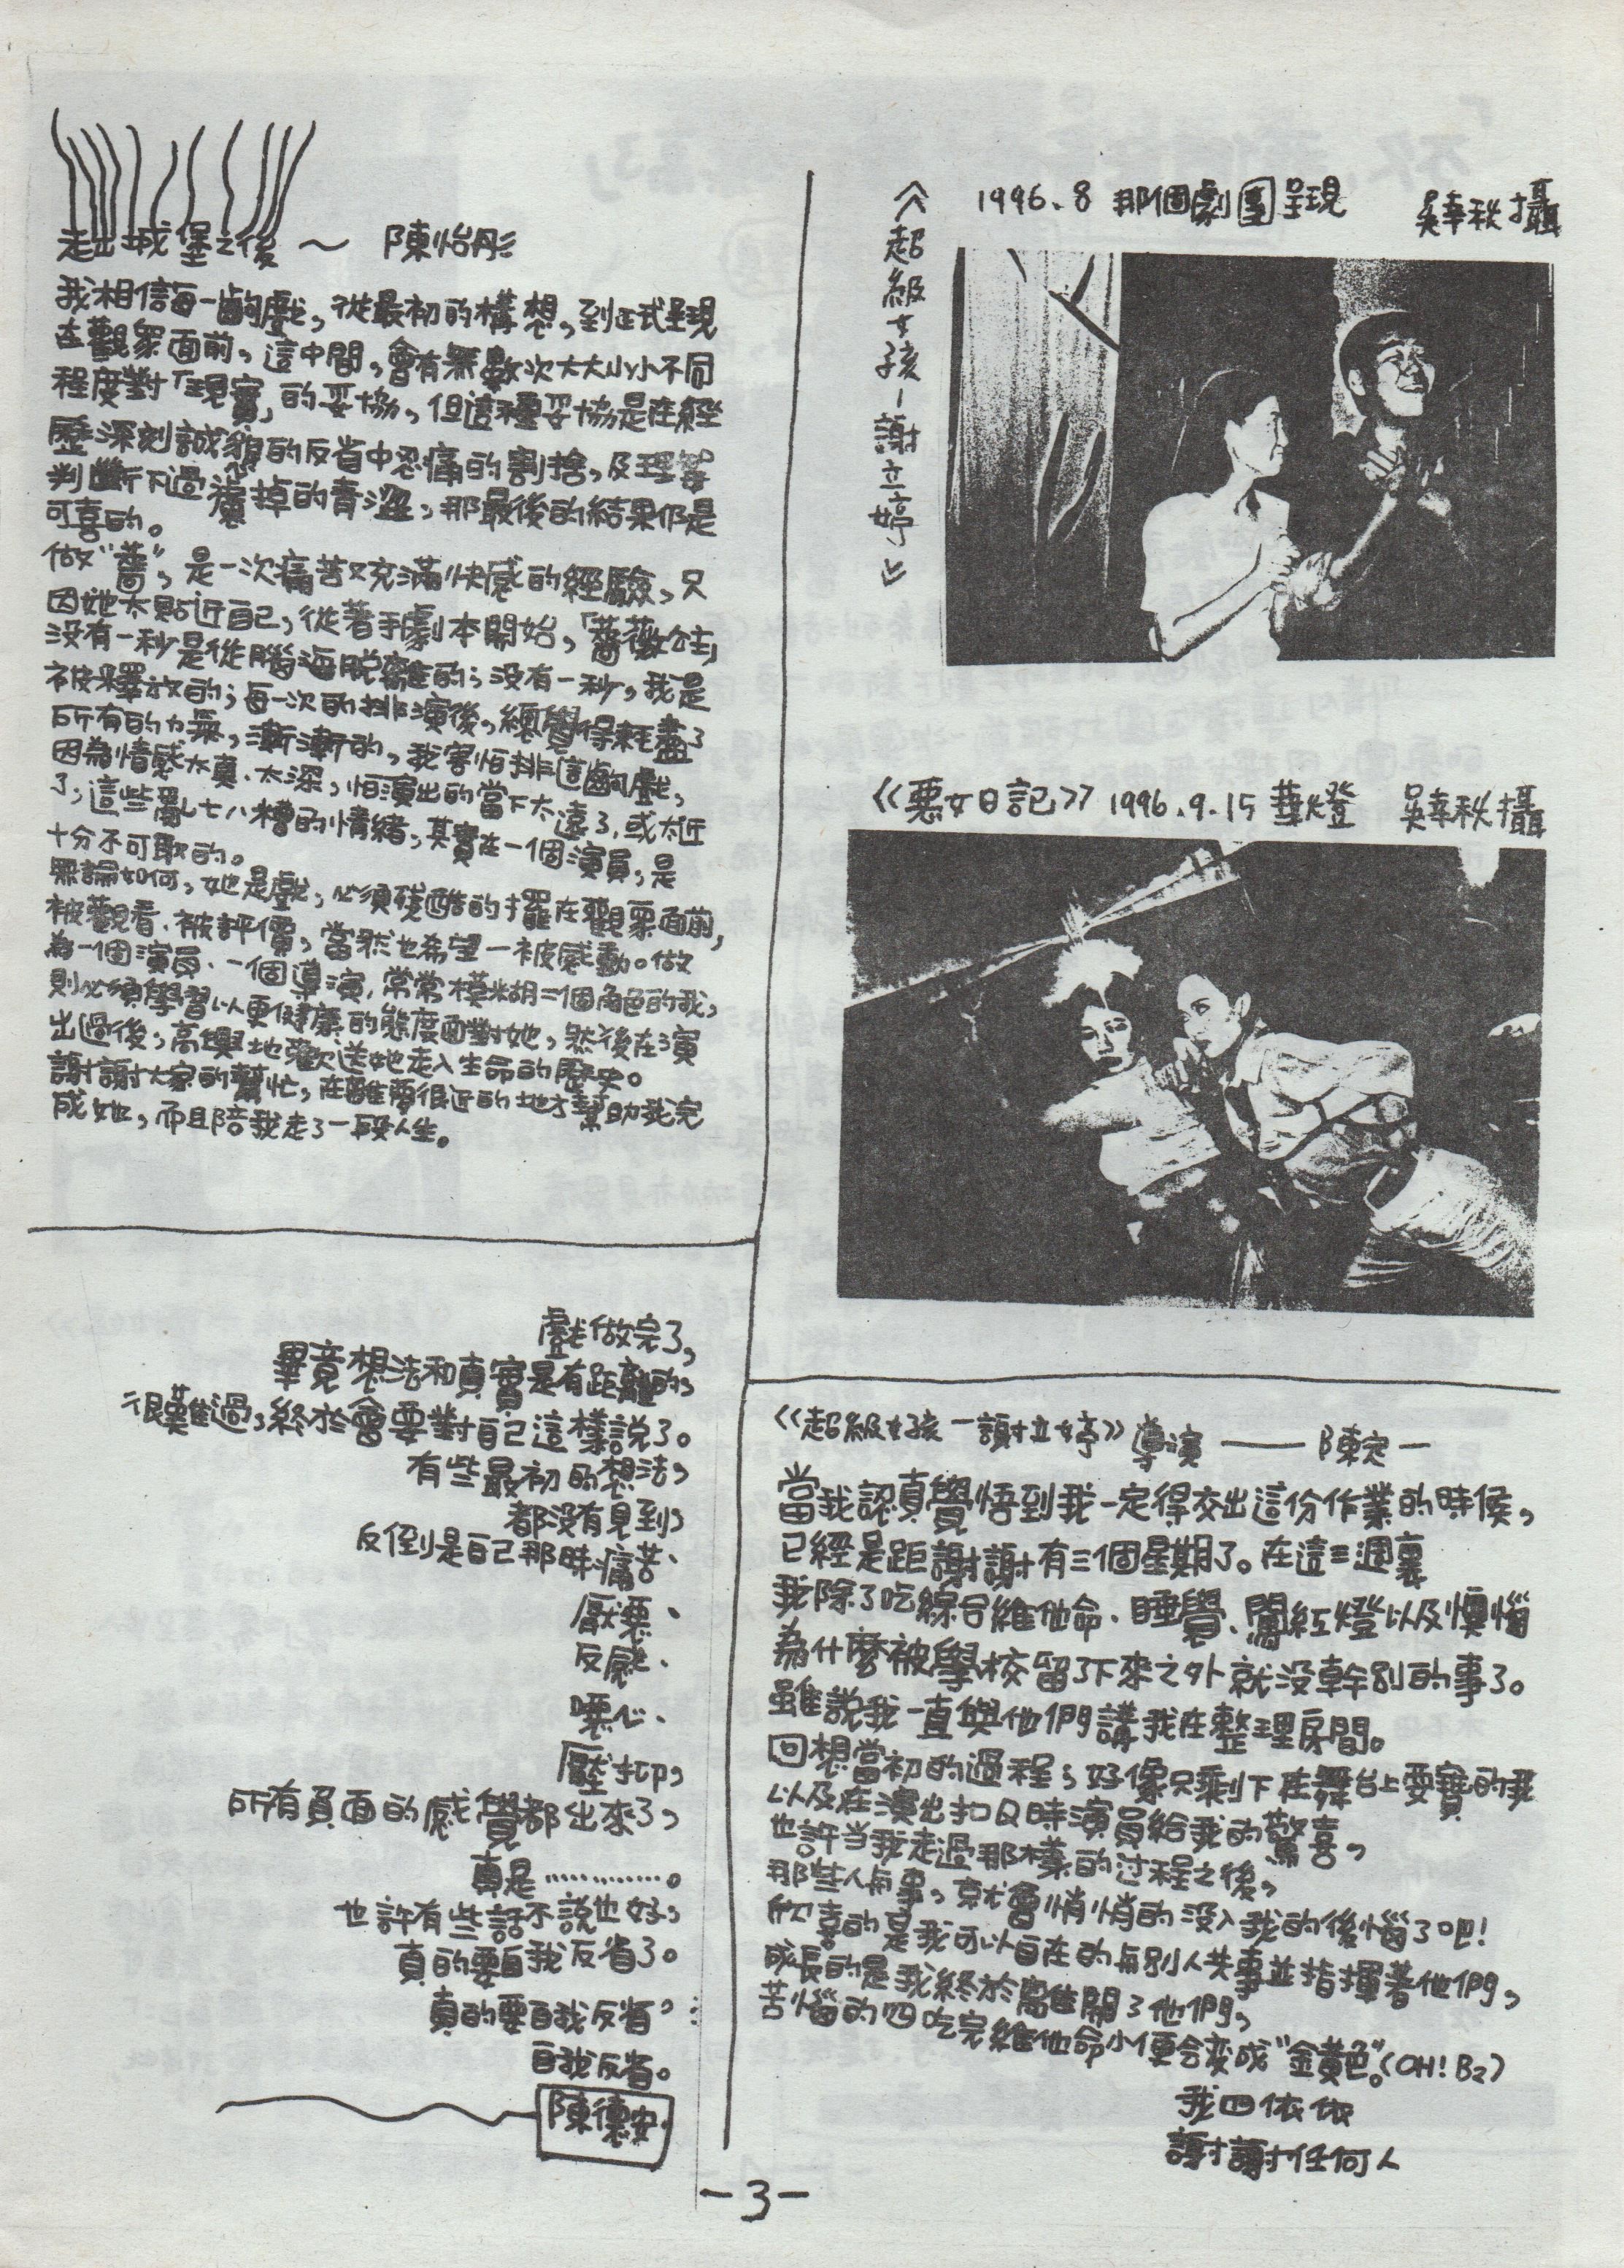 走出城堡之後～ 陳怡彤
我相信每一齣戲，從最初的構想，到正式呈現
在觀眾面前，這中間，會有無數次大大小小不同
程度對「現實」的妥協，但這種妥協是在經
歷深刻誠貌的反省中忍痛的割捨，及理智
判斷下過濾掉的青澀，那最後的結果仍是
可喜的。
做"薔"，是一次痛苦又充滿快感的經驗，只
因她太貼近自己，從著手劇本開始，「薔薇公主」
沒有一秒是從腦海脫離的；沒有一秒，我是
被釋放的；每一次的排演後，總覺得耗盡了
所有的力氣，漸漸的，我害怕排這齣戲，
因為情感太真、太深，怕演出的當下太遠了，或太近
了，這些亂七八糟的情緒，其實在一個演員，是
十分不可取的。
無論如何，她是戲，必須殘酷的擺在觀眾面前，
被觀看、被評價，當然也希望一被感動。做
為一個演員、一個導演，常常模糊二個角色的我，
則必須學習以更健康的態度面對她，然後在演
出過後，高興地歡送她走入生命的歷史。
謝謝大家的幫忙，在離夢很近的地方幫助我完
成她，而且陪我走了一段人生。
1996.8 那個劇團呈現 吳幸秋攝
《超級女孩－謝立婷》
《惡女日記》1996.9.15 華燈 吳幸秋攝
戲做完了，
畢竟想法和真實是有距離的，
很難過，終於會要對自己這樣說了。
有些最初的想法，
都沒有見到，
反倒是自己那時痛苦、
厭惡、
反感、
噁心、
壓抑，
所有負面的感覺都出來了，
真是…………。
也許有些話不說也好，
真的要自我反省了。
真的要自我反省，
自我反省。
陳德安.
《超級女孩－謝立婷》導演——陳定一
當我認真覺悟到我一定得交出這份作業的時候，
已經是距謝謝有三個星期了。在這三週裏
我除了吃綜合維他命、睡覺、闖紅燈以及懊惱
為什麼被學校留了下來之外就沒幹別的事了。
雖說我一直與他們講我在整理房間。
回想當初的過程，好像只剩下在舞台上耍寶的我
以及在演出扣Q時演員給我的驚喜，
也許當我走過那樣的过程之後，
那些人与事，就會悄悄的沒入我的後惱了吧！
欣喜的是我可以自在的與別人共事並指揮著他們，
成長的是我終於離開了他們，
苦惱的四吃完維他命小便会变成"金黃色"。(OH! B2)
我四依依
謝謝任何人
-3-